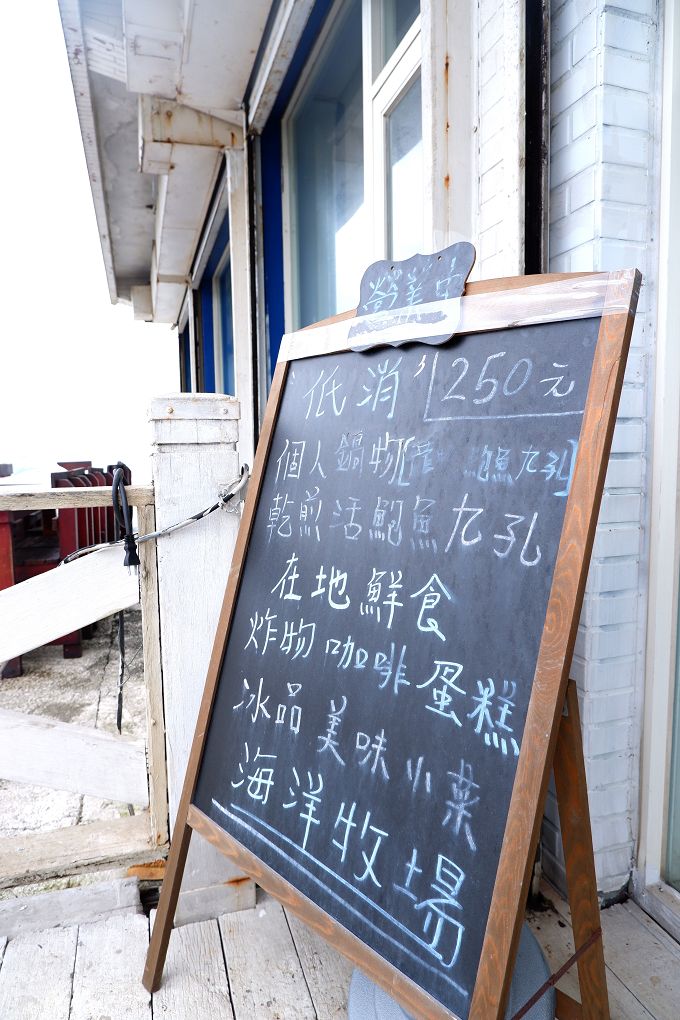 營業中
低消 250元
個人鍋物 鮑魚九孔
乾煎活鮑魚九孔
在地鮮食
炸物 咖啡 蛋糕
冰品 美味小菜
海洋牧場